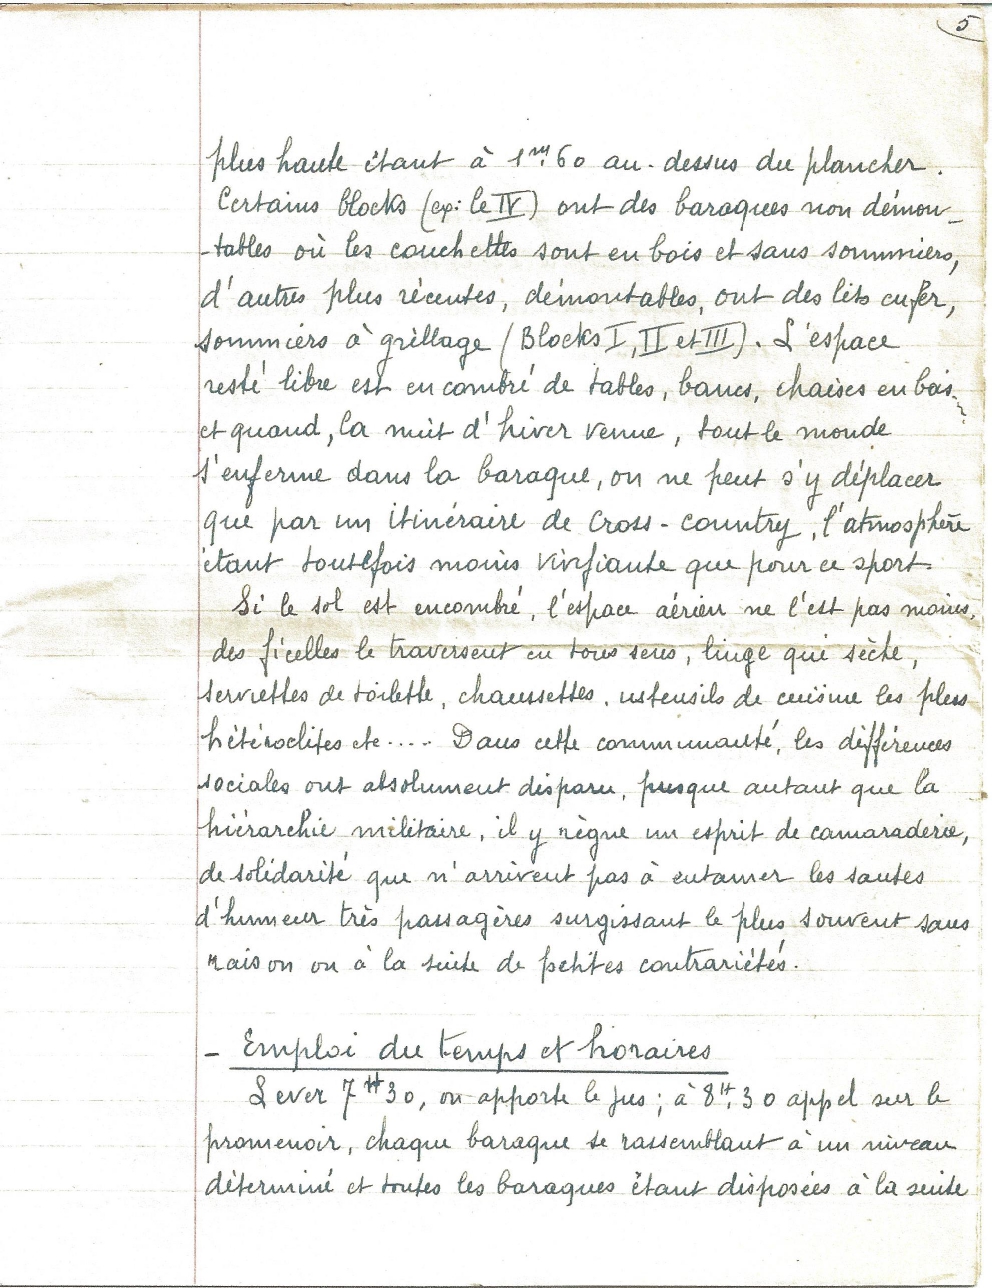 5
plus haute étant à 1m,60 au-dessus du plancher.
Certains blocks (ex: le IV) ont des baraques non démon-
-tables où les couchettes sont en bois et sans sommiers,
d'autres plus récentes, démontables, ont des lits en fer,
sommiers à grillage (Blocks I, II et III). L'espace
resté libre est encombré de tables, bancs, chaises en bois...
et quand, la nuit d'hiver venue, tout le monde
s'enferme dans la baraque, on ne peut s'y déplacer
que par un itinéraire de cross-country, l'atmosphère
étant toutefois moins vivifiante que pour ce sport.
Si le sol est encombré, l'espace aérien ne l'est pas moins,
des ficelles le traversent en tous sens, linge qui sèche,
serviettes de toilette, chaussettes, ustensils de cuisine les plus
hétéroclites etc.... Dans cette communauté, les différences
sociales ont absolument disparu, presque autant que la
hiérarchie militaire, il y règne un esprit de camaraderie,
de solidarité que n'arrivent pas à entamer les sautes
d'humeur très passagères surgissant le plus souvent sans
raison ou à la suite de petites contrariétés.
- Emploi du temps et horaires
Lever 7H30, on apporte le jus; à 8H,30 appel sur le
promenoir, chaque baraque se rassemblant à un niveau
déterminé et toutes les baraques étant disposées à la suite